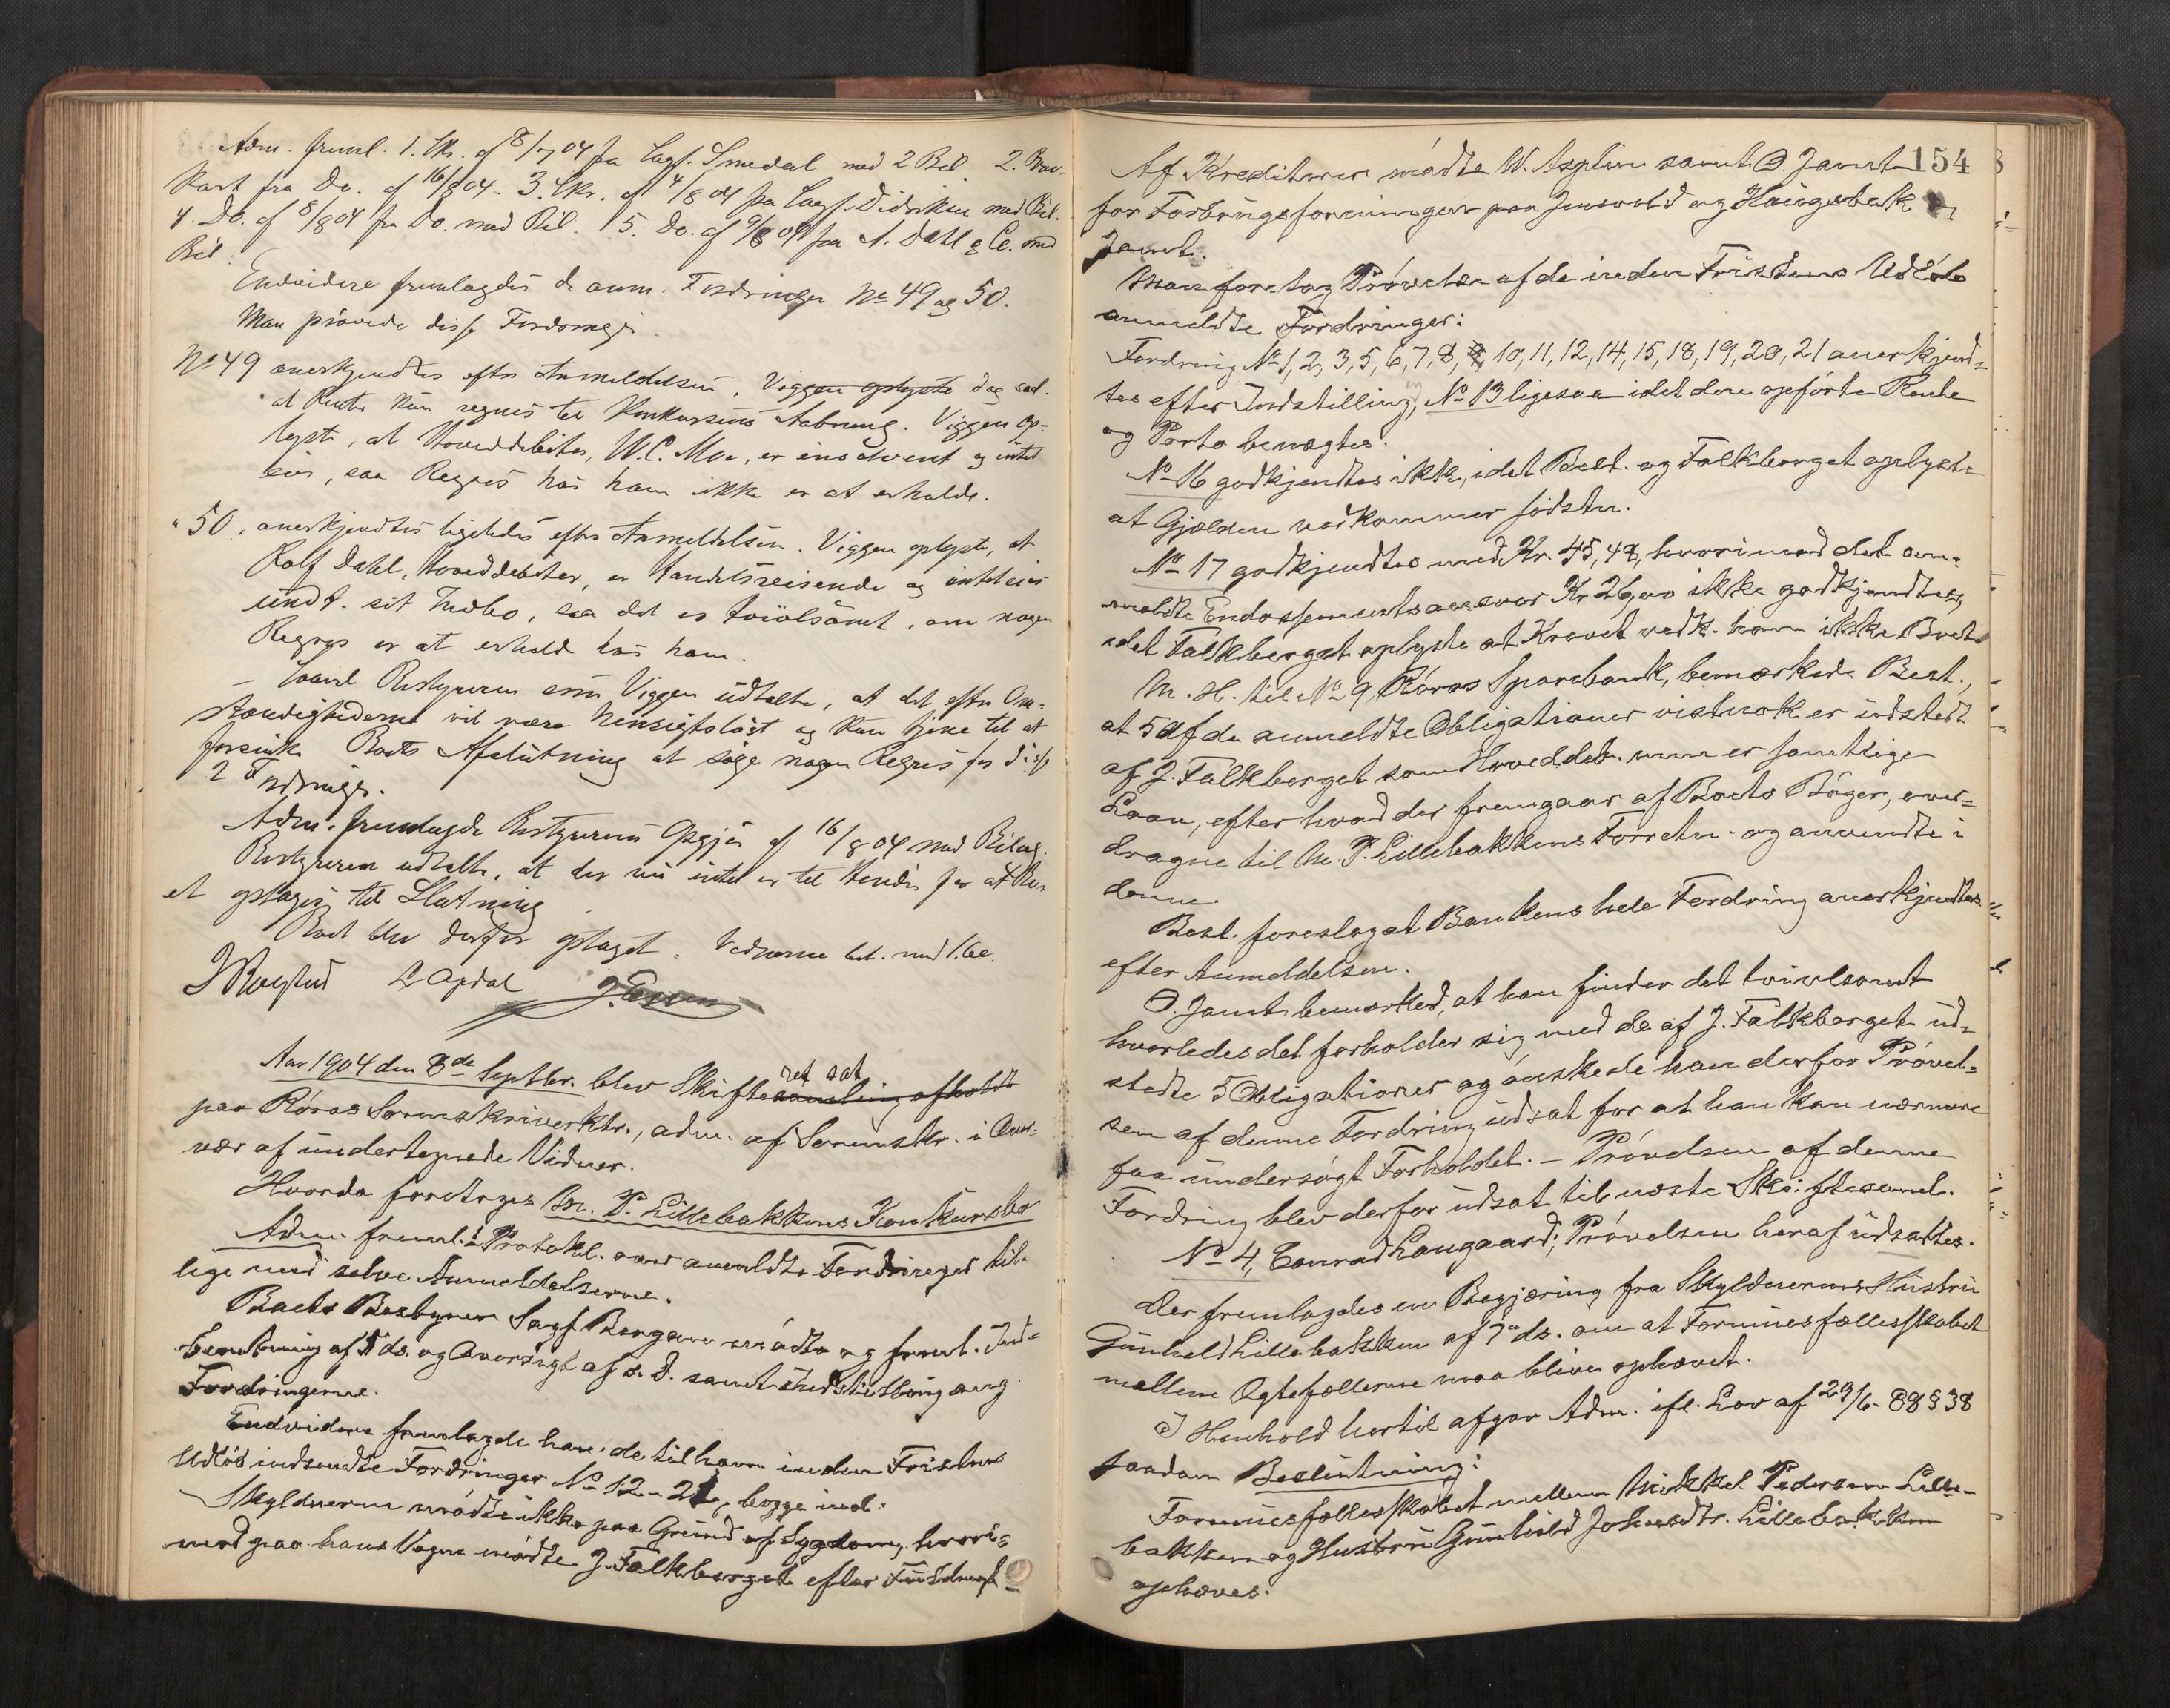 Adm. freml. 1. Skr. af 8/7 04 fra Sagf. Smedal med 2 Bil. 2. Brev-
kort fra Do. af 16/8 04. 3. Skr. af 4/8 04 fra Sagf. Didriksen med Bil.
4. Do. af 8/8 04 fra Do. med Bil. 5. Do. af 9/8 04 fra A. Dahl & Co. med
Bil.
Endvidere fremlagdes de anm. Fordringer No 49 og 50.
Man prøvede disse Fordringer.
No 49 anerkjendtes efter Anmeldelsen, Viggen oplyste dog saa.
at Renter kun regnes til Konkursens Aabning. Viggen op-
lyste, at Hoveddebitor, W.C. Moe, er insolvent og intet
eier, saa Regres hos ham ikke er at erholde.
" 50. anerkjendtes ligeledes efter Anmeldelsen. Viggen oplyste, at
Rolf Dahl, Hoveddebitor, er Handelsreisende og intet eier
undt. sit Indbo, saa det er tvivlsomt, om nogen
Regres er at erholde hos ham.
– Saavel Bestyreren som Viggen udtalte, at det efter Om-
stændighederne vil være hensigtsløst og kun tjene til at
forsinke Boets Afslutning at søge nogen Regres for disse
2 Fordringer.
Adm. fremlagde Bestyrerens Opgjør af 16/8 04 med Bilag.
Bestyreren udtalte, at der nu intet er til Hinder for at Bo-
et optages til Slutning
Boet blev derfor optaget. Vidnerne bet. med 1.60.
L Opdal
Aar 1904 den 8de Septbr. blev Skiftesamling afholdt
ret sat
paa Røros Sorenskriverktr., adm. af Sorenskr. i Over-
vær af undertegnede Vidner.
Hvorda foretoges M. P. Lillebakkens Konkursbo
Adm. freml. Protokl. over anmeldte Fordringer til-
lige med selve Anmeldelserne.
Boets Bestyrer Sagf. Borgen mødte og freml. Ind-
beretning af ds. og Oversigt af s. D. samt Indstilling ang.
Fordringerne.
Endvidere fremlagde han de til ham inden Fristens
Udløb indsendte Fordringer No 12 - 21, begge incl.
Skyldneren mødte ikke paa Grund af Sygdom, hvori-
mod paa hans Vegne mødte J. Falkberget efter Fuldmagt
154
Af Kreditorer mødte W. Asplin samt O. Jamt
for Forbrugsforeningen paa Jensvold og Haugsbak
Jamt.
Man foretog Prøvelse af de inden Fristens Udløb
anmeldte Fordringer:
Fordring No 1, 2, 3, 5, 6, 7, 8, 9, 10, 11, 12, 14, 15, 18, 19, 20, 21 anerkjend-
tes efter Indstilling, No 13 ligesaa idet den opførte Rente
og Porto benægtes.
No 16 godkjendtes ikke, idet Best. og Falkberget oplyste
at Gjælden vedkommer sidstn.
No 17 godkjendtes med Kr. 45,48, hvorimod det an-
meldte Endossementsansvar Kr 26,00 ikke godkjendtes,
idet Falkberget oplyste at Kravet vedk. ham ikke Boet.
M. H. til No 9, Røros Sparebank, bemærkede Best.,
at 5 af de anmeldte Obligationer vistnok er udstedt
af J. Falkberget som Hoveddeb. men er samtlige
Laan, efter hvad der fremgaar af Boets Bøger, over-
dragne til M. P. Lillebakkens Forretn. og anvendte i
denne.
Best. foreslog at Bankens hele Fordring anerkjendtes
efter Anmeldelsen.
O. Jamt bemærked, at han finder det tvivlsomt
hvorledes det forholder sig med de af J. Falkberget ud-
stedte 5 Obligationer og ønskede han derfor Prøvel-
sen af denne Fordring udsat for at han kan nærmere
faa undersøgt Forholdet. – Prøvelsen af denne
Fordring blev derfor udsat til næste Skiftesaml.
No 4, Conrad Langaard; Prøvelsen heraf udsattes.
Der fremlagdes en Begjæring fra Skyldnerens Hustru
Gunhild Lillebakken af 7de ds. om at Formuesfællesskabet
mellem Ægtefællerne maa blive ophævet.
I Henhold hertil afgav Adm. ifl. Lov af 29/6-88 § 38
saadan Beslutning:
Formuesfællesskabet mellem Mikkel Pedersen Lille-
bakken og Hustru Gunhild Johnsdtr. Lillebakken
ophæves.